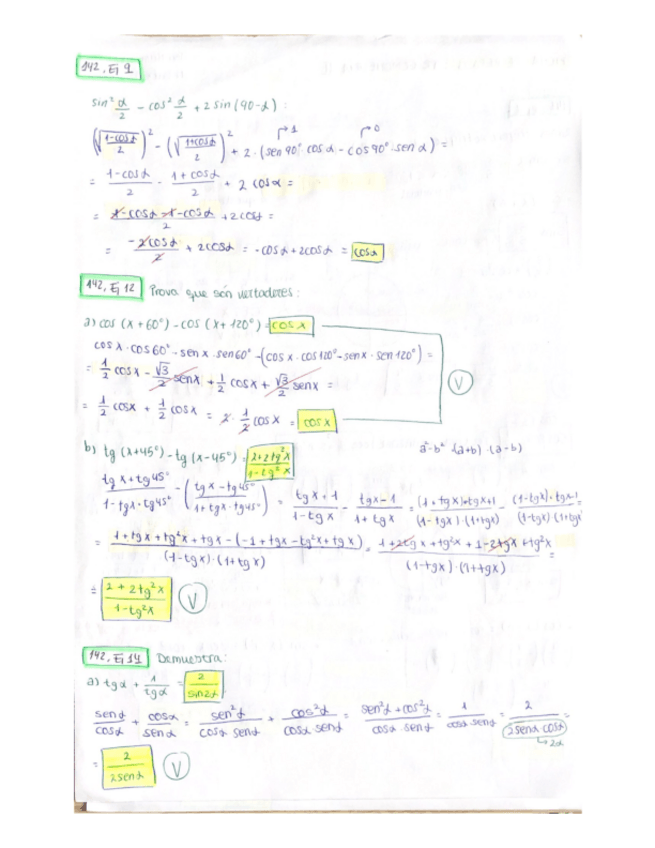 142, Ej 9
sin² α/2 - cos² α/2 + 2 sin (90-α) :
(√(1-cosα/2))² - (√(1+cosα/2))² + 2 · (sen 90° cos α - cos 90° · sen α) =
→ 1 → 0
= 1-cosα/2 - 1+cosα/2 + 2 cosα =
= 1-cosα-1-cosα/2 + 2cosα =
= -2cosα/2 + 2cosα = -cosα+2cosα = cosα
142, Ej 12 Prova que són vertaderes:
a) cos (x+60°) - cos (x+120°) = cos x
cos x · cos 60° - sen x · sen 60° - (cos x · cos 120° - sen x · sen 120°) =
= 1/2 cos x - √3/2 sen x + 1/2 cos x + √3/2 sen x =
V
= 1/2 cosx + 1/2 cosx = 2 · 1/2 cos x = cos x
b) tg (x+45°) - tg (x-45°) = 2+2tg²x/1-tg²x
a²-b² = (a+b) · (a-b)
tg x + tg 45°/1-tgx · tg45° - (tg x - tg45°/1+tgx · tg45°) = tg x + 1/1-tg x - tgx-1/1+tgx = (1+tgx)·tgx+1/(1-tgx)·(1+tgx) - (1-tgx)·tgx-1/(1-tgx)(1+tgx)
= 1+tgx+tg²x+tgx-(-1+tgx-tg²x+tgx)/(1-tgx)·(1+tgx) = 1+2tgx+tg²x+1-2tgx+tg²x/(1-tgx)·(1+tgx) =
= 2+2tg²x/1-tg²x V
142, Ej 14 Demuestra:
a) tgα + 1/tgα = 2/sin2α
senα/cosα + cosα/senα = sen²α/cosα senα + cos²α/cosα senα = sen²α+cos²α/cosα·senα = 1/cosα senα = 2/2senα cosα =
→ 2α
= 2/2senα V